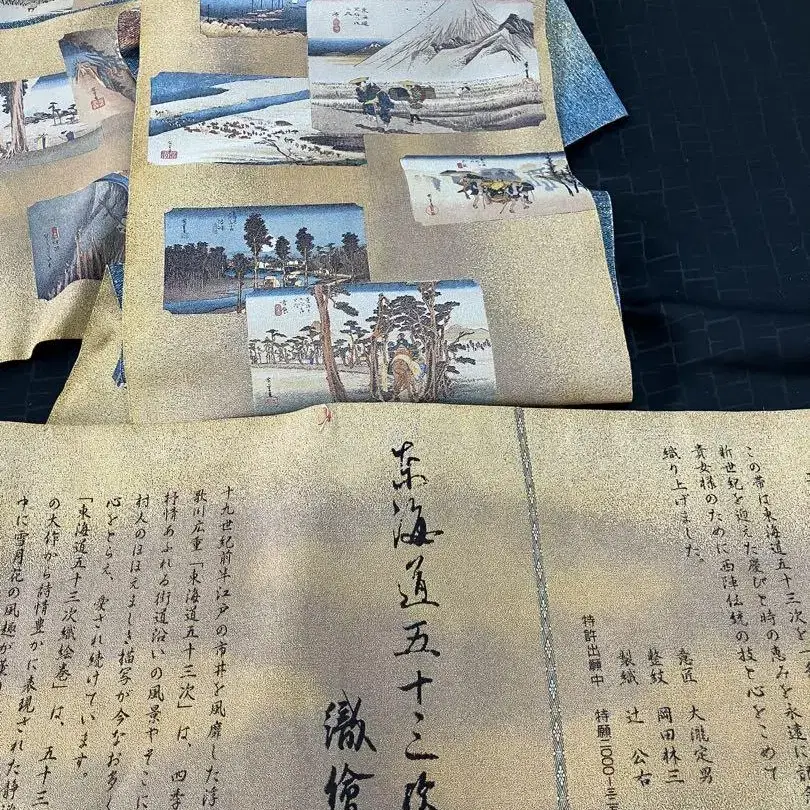 この帯は東海道五十三次を
新世紀を迎えた慶びと時の恵みを永遠に
貴女様のために西陣伝統の技と心をこめて
織り上げました。
意匠 大瀧定男
整紋 岡田林三
製織 辻 公古
特許出願中 特願二000ー三
東海道五十三次
織繪
十九世紀前半江戸の市井を風靡した浮
歌川広重「東海道五十三次」は、四季
抒情あふれる街道沿いの風景やそこに
村人のほほえましき描写が今なお多く
心をとらえ、愛され続けています。
「東海道五十三次織絵巻」は、五十三
の大作から詩情豊かに表現された静
中に雪月花の風趣が